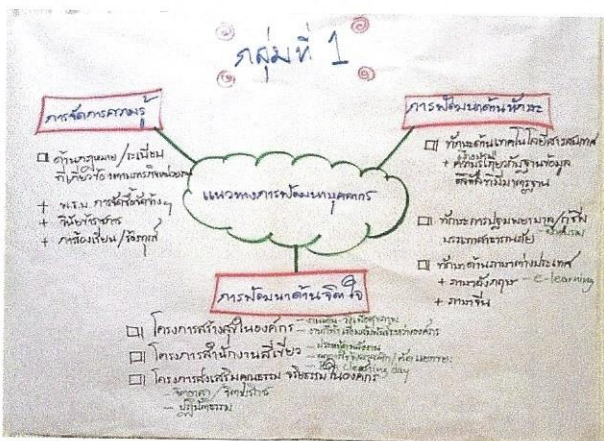 กลุ่มที่ 1
การจัดการความรู้
ด้านกฎหมาย/ระเบียบ
ที่เกี่ยวข้องตามภารกิจหน่วยงาน
+ พ.ร.บ. การจัดซื้อจัดจ้างฯ
+ วินัยข้าราชการ
+ การร้องเรียน/ร้องทุกข์
แนวทางการพัฒนาบุคลากร
การพัฒนาด้านทักษะ
ทักษะด้านเทคโนโลยีสารสนเทศ
+ ความรู้เกี่ยวกับฐานข้อมูล
ดิจิทัลที่มีมาตรฐาน
ทักษะการปฐมพยาบาล/กู้ชีพ
บรรเทาสาธารณภัย
ทักษะด้านภาษาต่างประเทศ
+ ภาษาอังกฤษ - e-learning
+ ภาษาจีน
การพัฒนาด้านจิตใจ
โครงการสร้างสุขในองค์กร
โครงการสำนักงานสีเขียว - ประหยัดพลังงาน
- Big cleaning day
โครงการส่งเสริมคุณธรรม จริยธรรมในองค์กร
- จิตอาสา / จิตบริการ
- ปฏิบัติธรรม